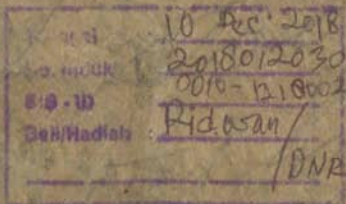 10 Dec' 2018
No. Induk : 2018012030
BIB - ID 0010-1218002
Beli/Hadiah : Ridwan/
DNR